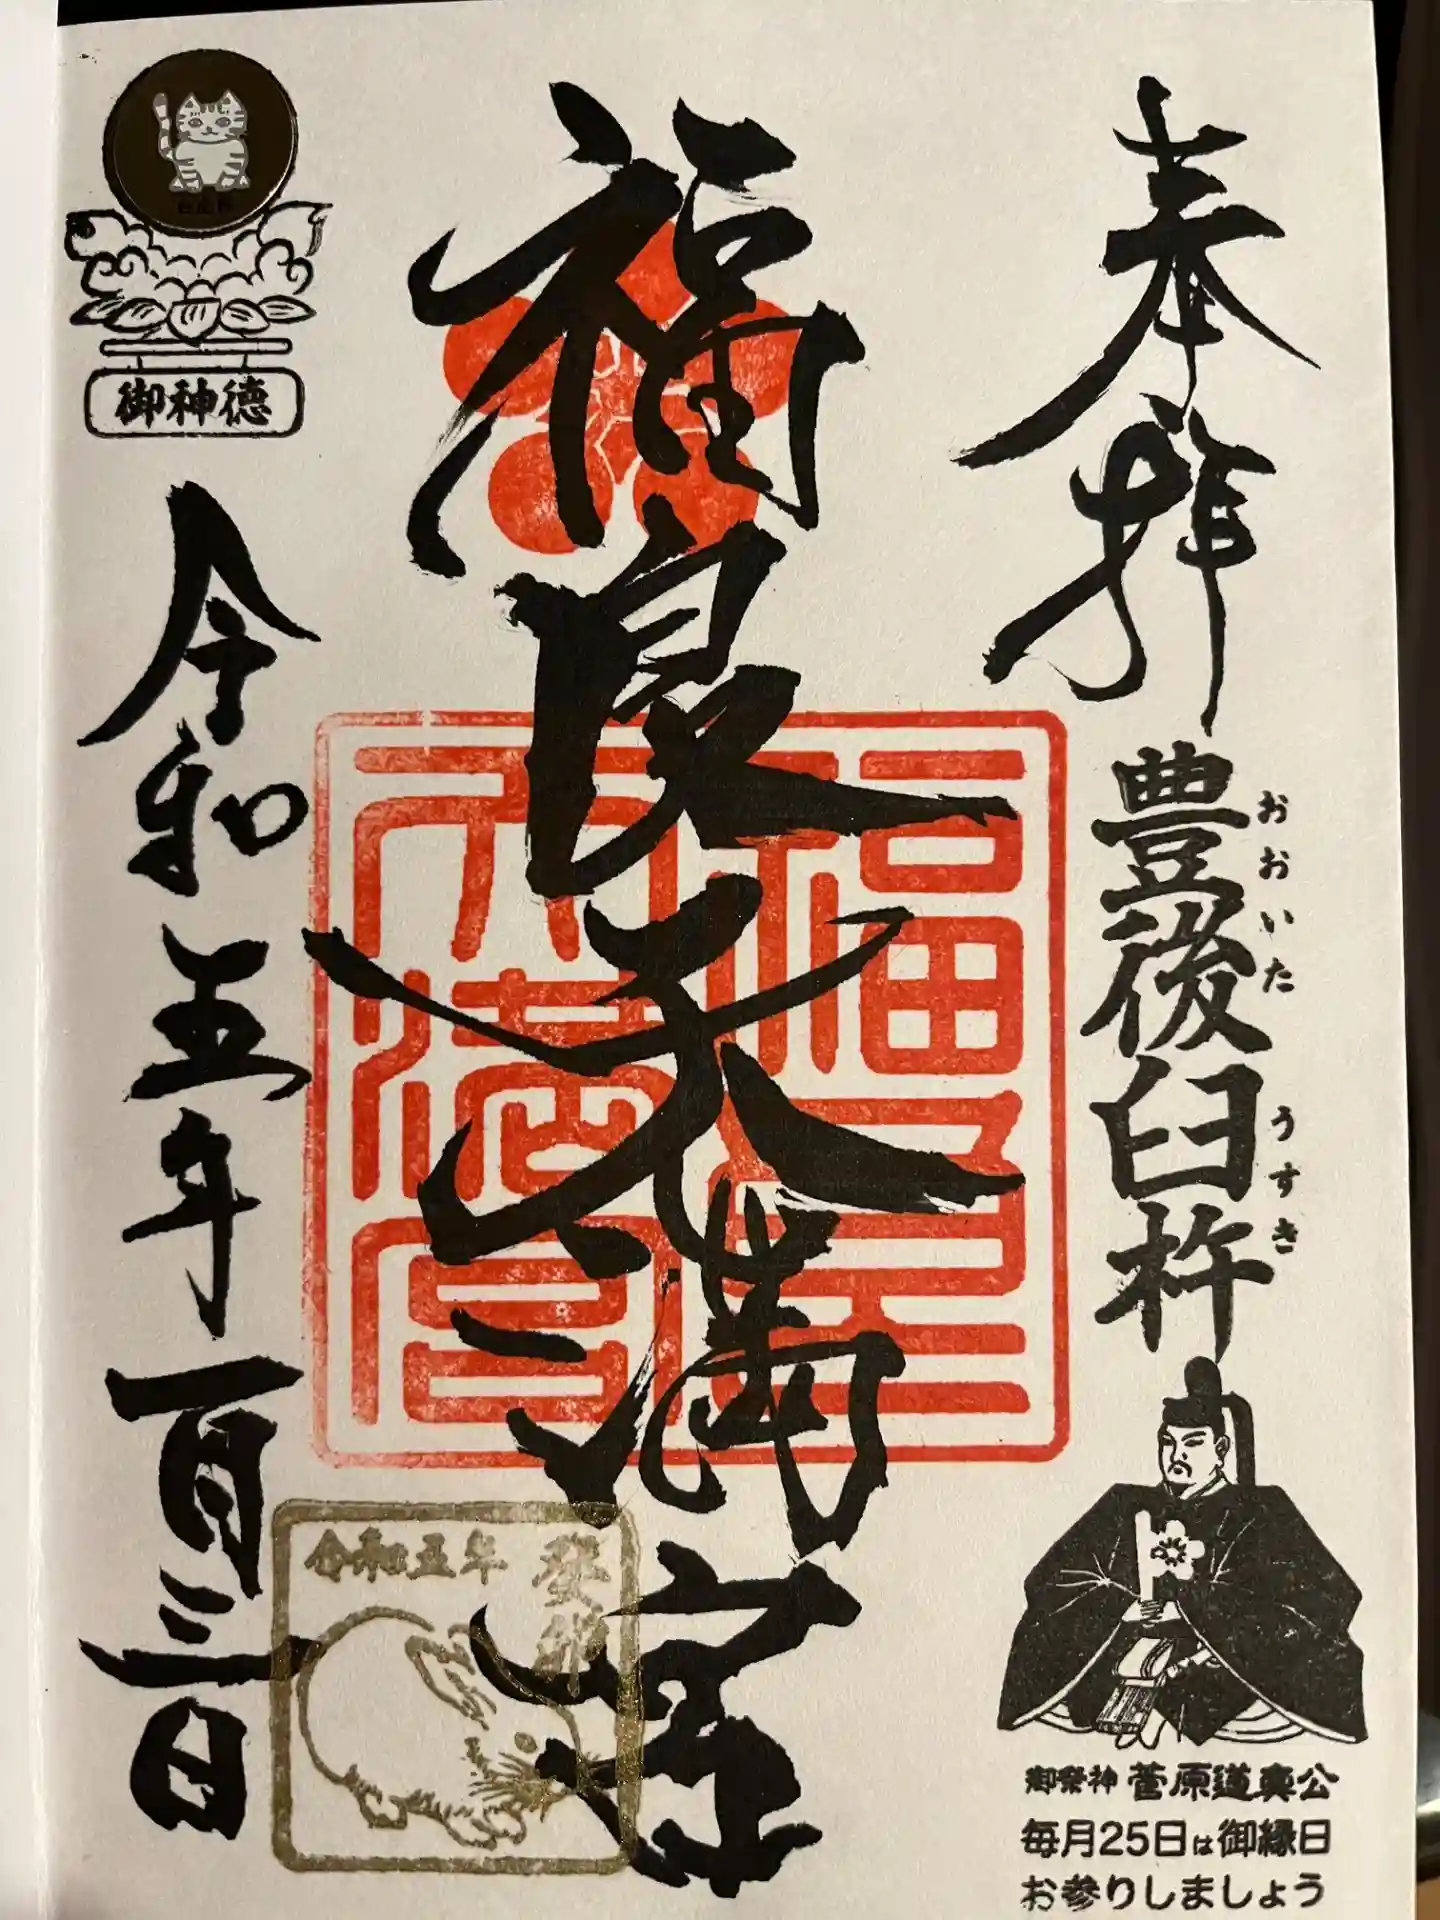 奉拝
豊後臼杵
おおいた
うすき
御祭神 菅原道真公
毎月25日は御縁日
お参りしましょう
福良天満宮
福良天満宮
御神徳
令和五年一月三日
令和五年
癸卯